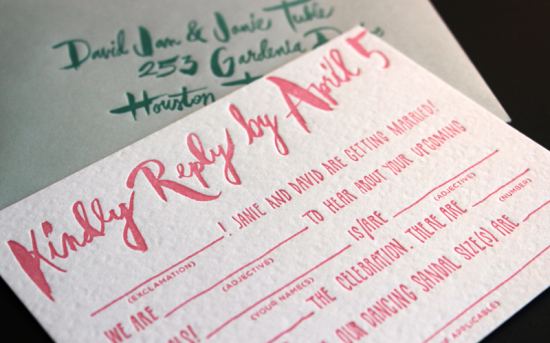 David Jam & Janie Tubie
253 Gardenia
Houston
Kindly Reply by April 5
! JANIE AND DAVID ARE GETTING MARRIED!
(EXCLAMATION)
WE ARE TO HEAR ABOUT YOUR UPCOMING
(ADJECTIVE)
! IS/ARE
(YOUR NAME(S)) (ADJECTIVE)
THE CELEBRATION. THERE ARE
(NUMBER)
OUR DANCING SANDAL SIZE(S) ARE
APPLICABLE)